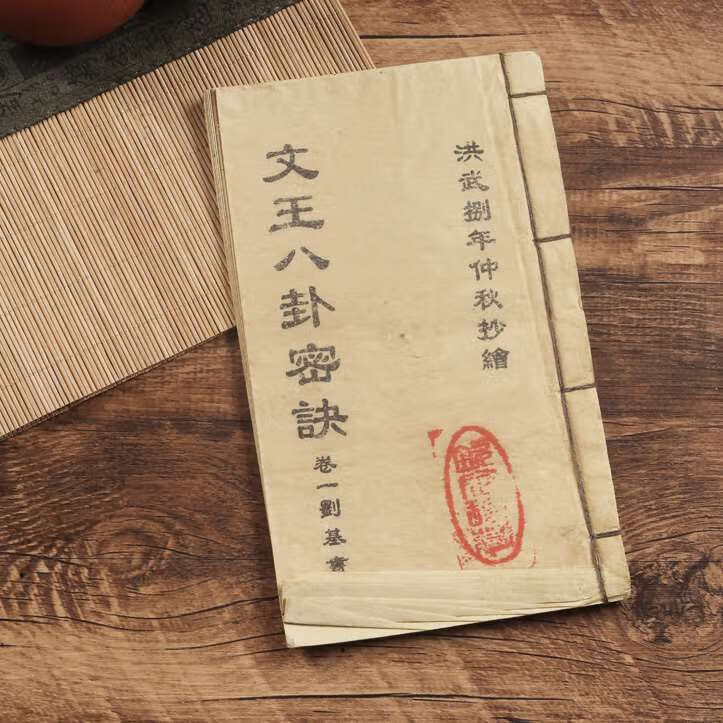 洪武捌年仲秋抄繪
文王八卦密訣
卷一劉基